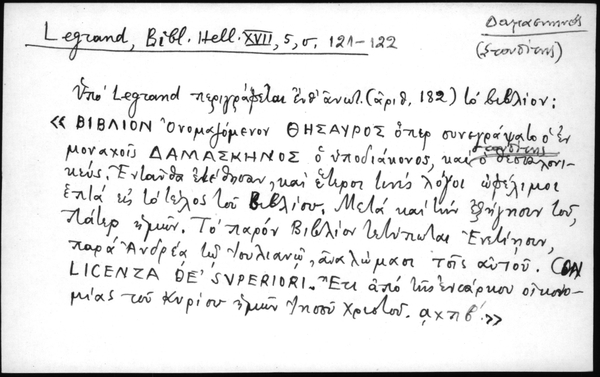 Δαμασκηνός
(Στουδίτης)
Legrand, Bibl. Hell. XVII, 5, σ. 121-122
Ὑπό Legrand περιγράφεται ἔνθ' ἀνωτ. (ἀριθ. 182) τό βιβλίον:
« ΒΙΒΛΙΟΝ Ὀνομαζόμενον ΘΗΣΑΥΡΟΣ ὅπερ συνεγράψατο ὁ ἐν
μοναχοῖς ΔΑΜΑΣΚΗΝΟΣ ὁ ὑποδιάκονος, καί Στουδίτης ὁ Θεσσαλονι-
κεύς. Ἐνταῦθα ἐτέθησαν, καί ἕτεροι τινές λόγοι ὠφέλιμοι
ἑπτά εἰς τό τέλος τοῦ Βιβλίου. Μετά καί τήν ἐξήγησιν τοῦ,
Πάτερ ἡμῶν. Τό παρόν Βιβλίον τετύπωται Ἐνετίησιν,
παρά Ἀνδρέᾳ τῷ Ἰουλιανῷ, ἀναλώμασι τοῖς αὐτοῦ. CON
LICENZA DE' SVPERIORI. Ἔτει ἀπό τῆς ἐνσάρκου οἰκονο-
μίας τοῦ Κυρίου ἡμῶν Ἰησοῦ Χριστοῦ. ͵αχπβ΄. »